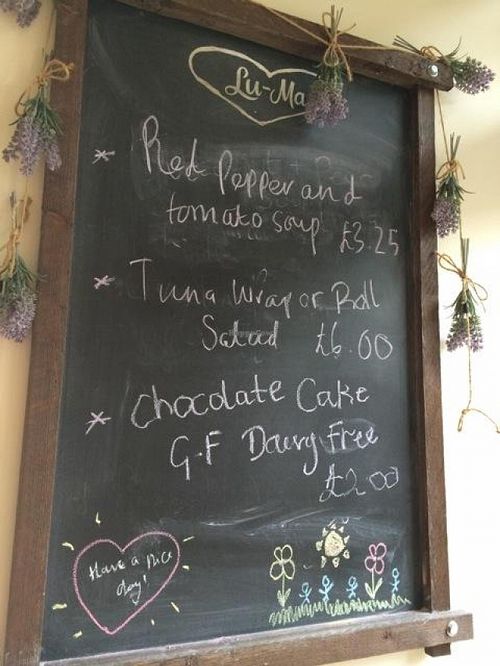 Lu-Ma
* Red Pepper and
tomato soup £3.25
* Tuna Wrap or Roll
Salad £6.00
* Chocolate Cake
G.F Dairy Free
£2.00
Have a nice
day!